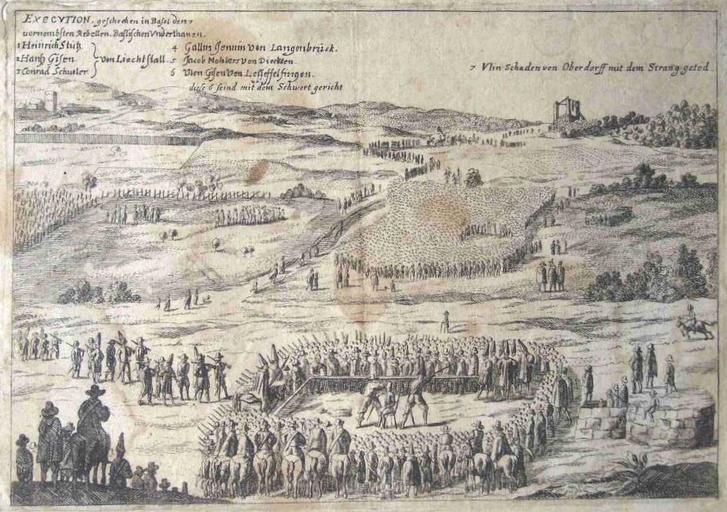 EXECVTION, geschechen in Basel den 7
vornembsten Rebellen. Baslischen Vnderthanen.
1 Heinrich Stutz
2 Hanß Gisen
3 Conrad Schuler
von Liechtstall.
4 Gallin Jennin von Langenbruck.
5 Jacob Mohlers von Dieckten
6 Vlin Gisen von Leiffelfingen.
dise 6 seind mit dem Schwert gericht
7 Vlin Schaden von Oberdorff mit dem Strang getod